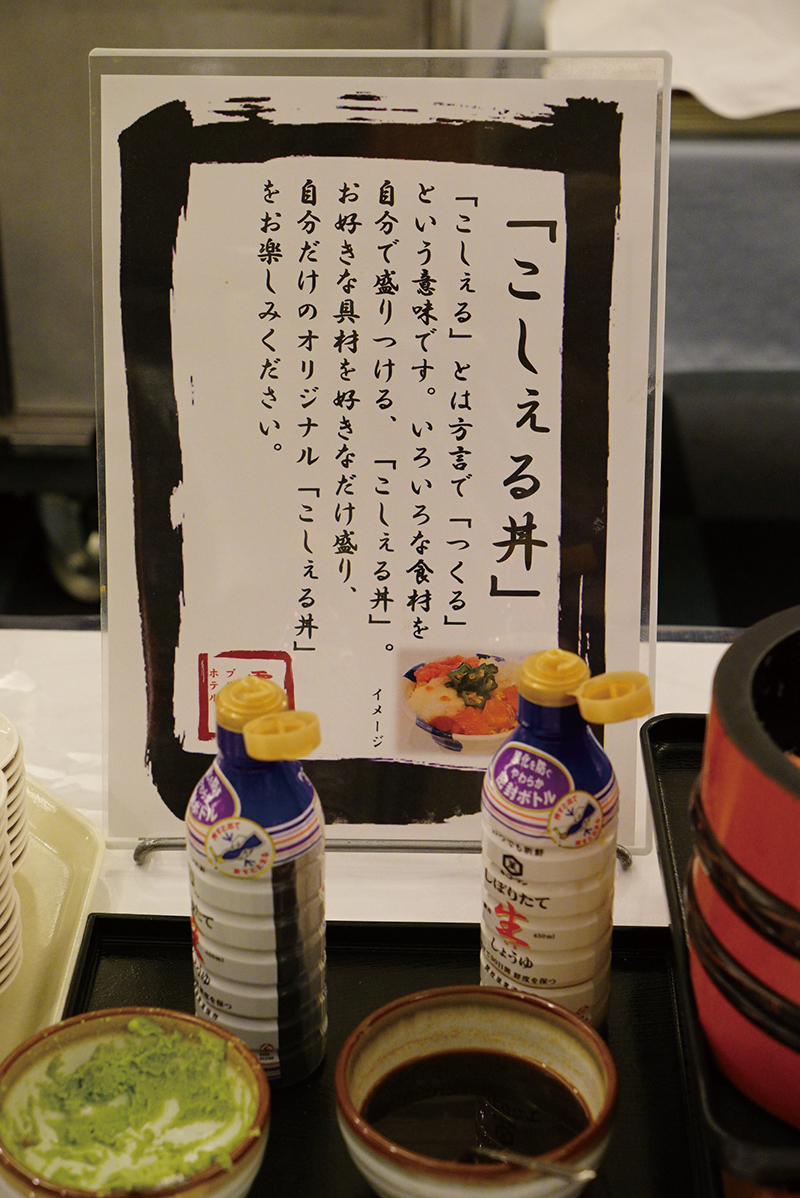 「こしぇる丼」
「こしぇる」とは方言で「つくる」
という意味です。いろいろな食材を
自分で盛りつける、「こしぇる丼」。
お好きな具材を好きなだけ盛り、
自分だけのオリジナル「こしぇる丼」
をお楽しみください。
イメージ
ホテル
ボトル
しぼりたて
生
しょうゆ
鮮度を保つ
酸化を防ぐ
やわらか
密封ボトル
いつでも新鮮
しぼりたて
生
450ml
しょうゆ
鮮度を保つ